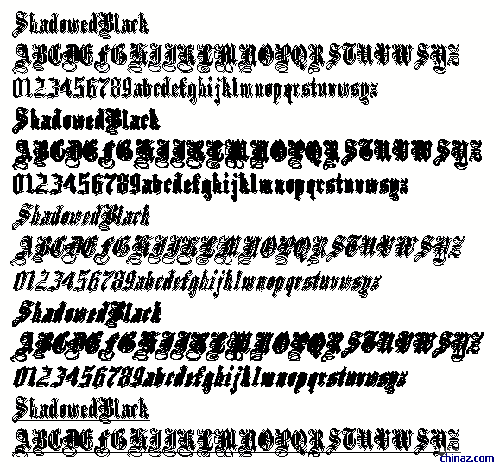 ShadowedBlack
ABCDEFGHIJKLMNOPQRSTUVWXYZ
0123456789abcdefghijklmnopqrstuvwxyz
ShadowedBlack
ABCDEFGHIJKLMNOPQRSTUVWXYZ
0123456789abcdefghijklmnopqrstuvwxyz
ShadowedBlack
ABCDEFGHIJKLMNOPQRSTUVWXYZ
0123456789abcdefghijklmnopqrstuvwxyz
ShadowedBlack
ABCDEFGHIJKLMNOPQRSTUVWXYZ
0123456789abcdefghijklmnopqrstuvwxyz
ShadowedBlack
ABCDEFGHIJKLMNOPQRSTUVWXYZ
Chinaz.com